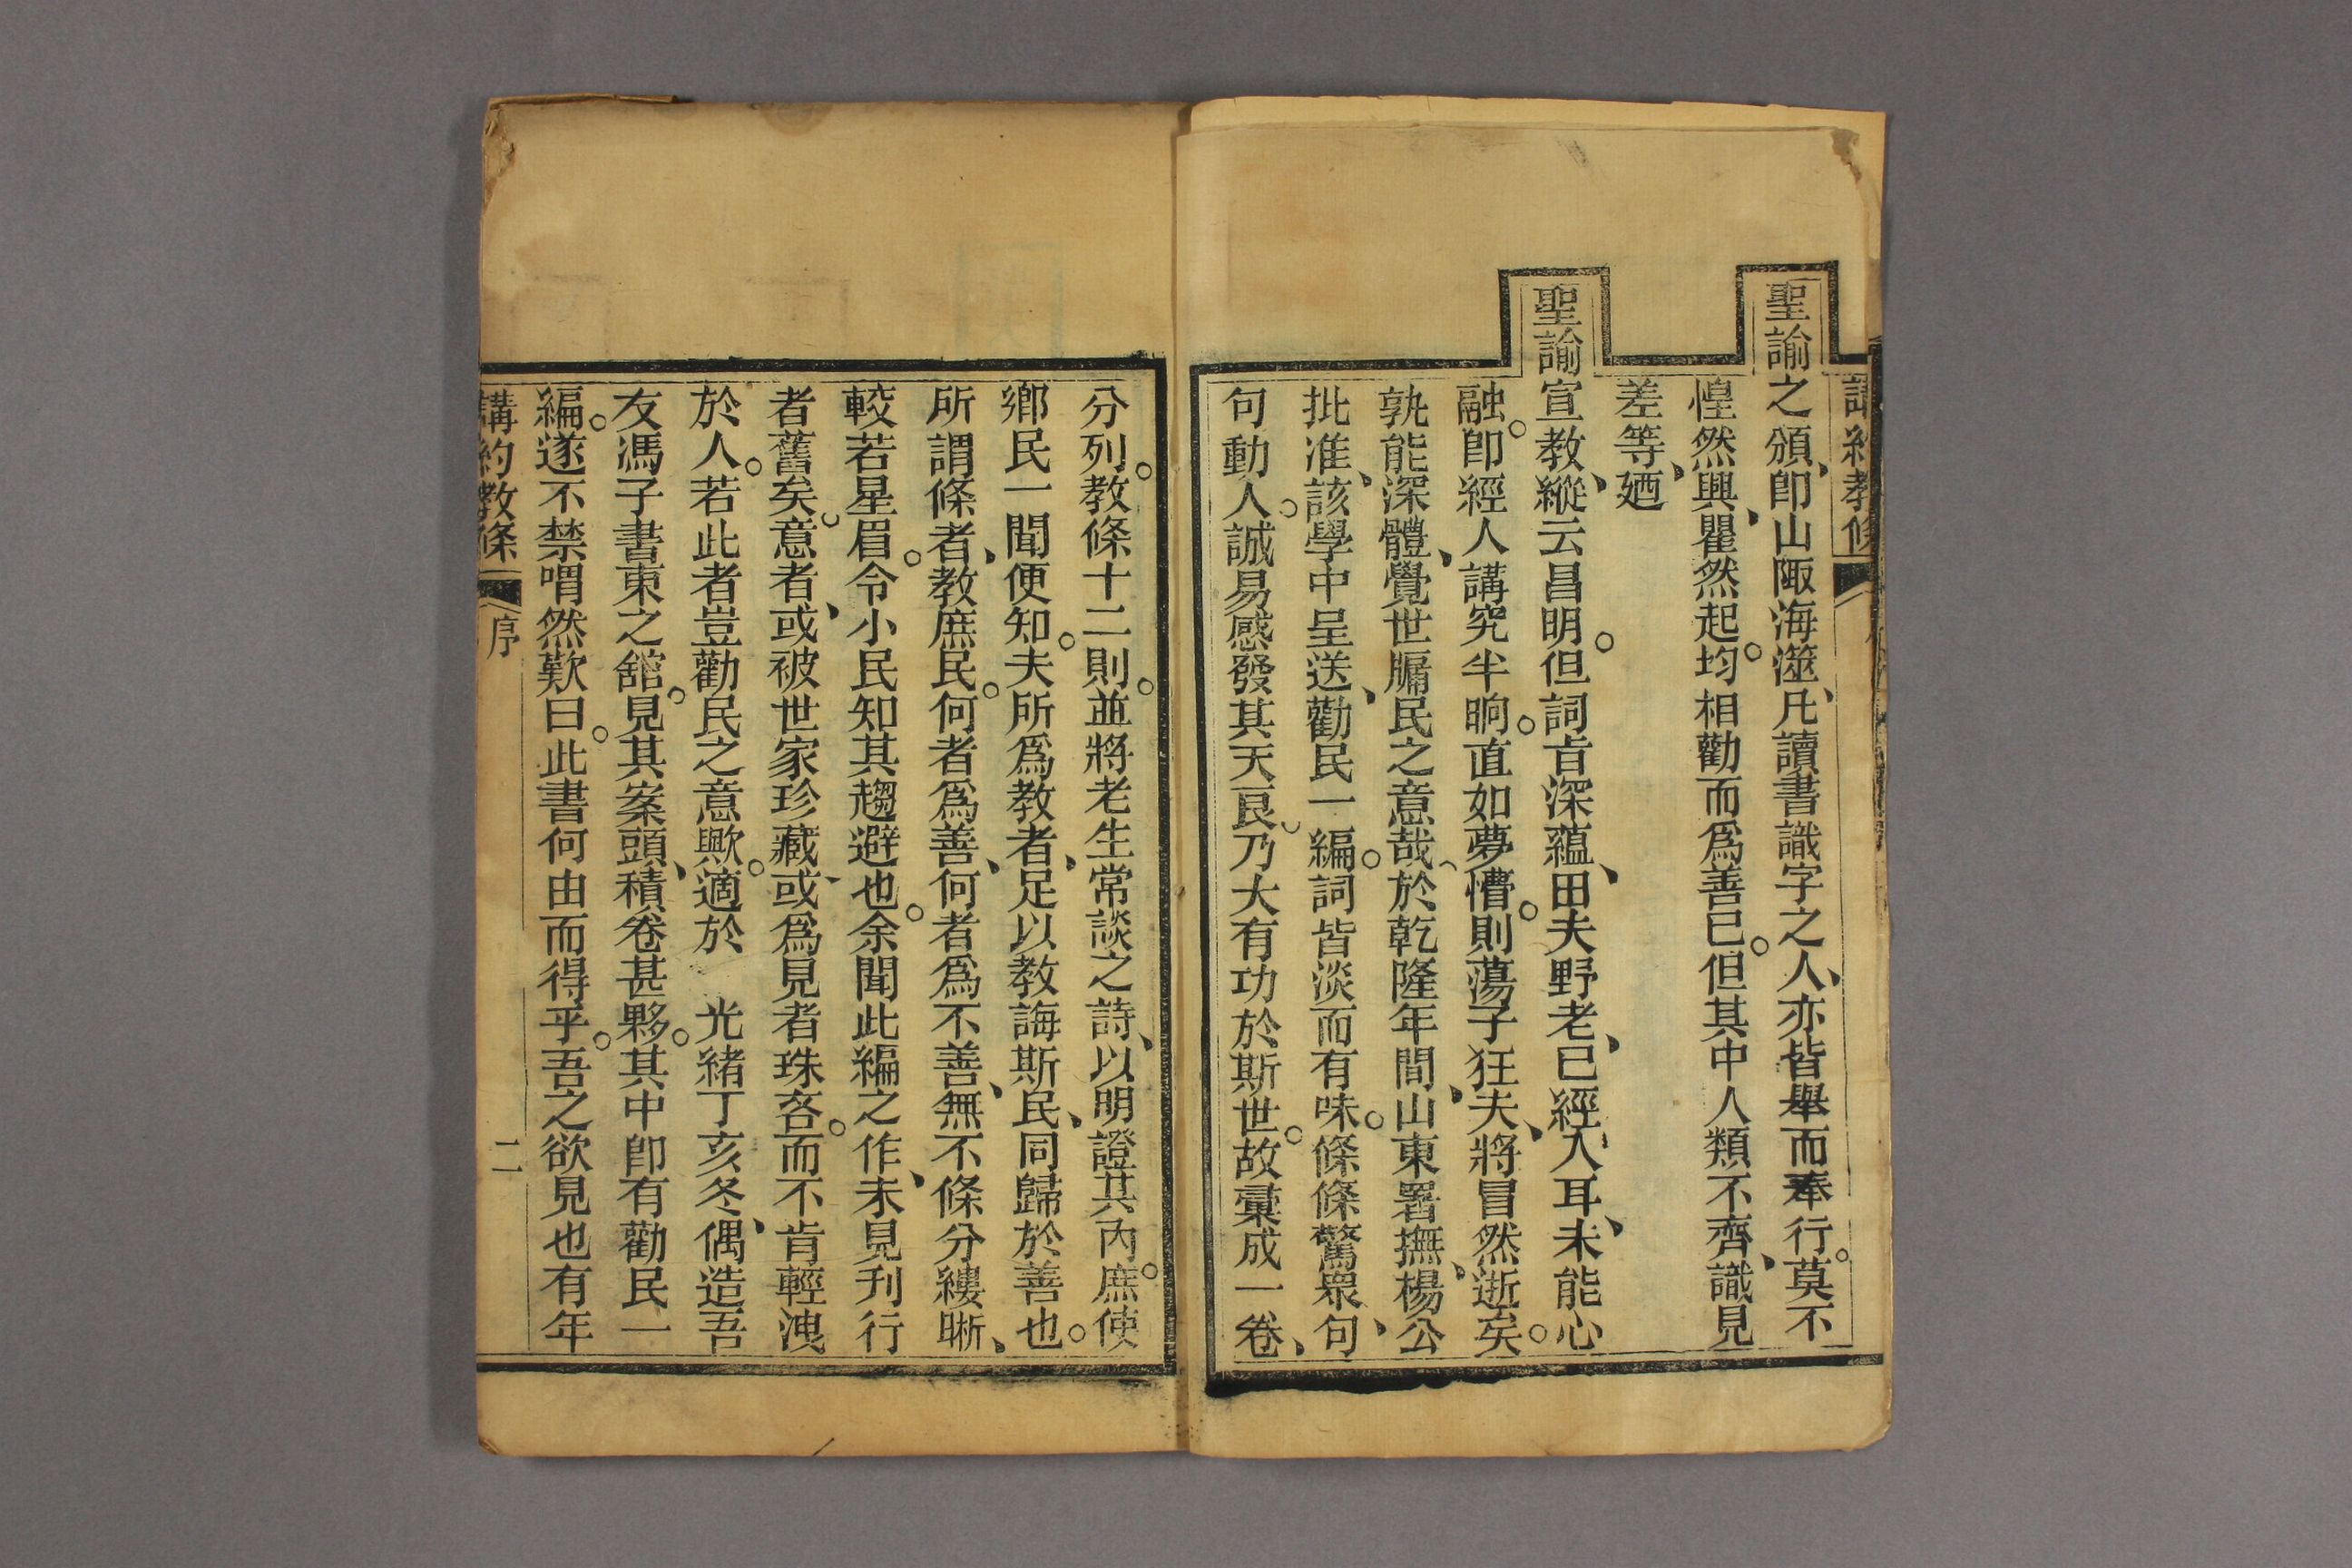 講約教條
聖諭之頒、卽山陬海澨、凡讀書識字之人、亦皆舉而奉行。莫不
惶然興、瞿然起。均相勸而爲善已。但其中人類不齊、識見
差等、廼
聖諭宣教、縱云昌明。但詞旨深蘊、田夫野老、已經入耳、未能心
融。卽經人講究半晌。直如夢懵。則蕩子狂夫、將冒然逝矣。
孰能深體、覺世牖民之意哉、於乾隆年間、山東署撫、楊公
批准、該學中呈送、勸民一編。詞皆淡而有味。條條驚衆、句
句動人。誠易感發其天良。乃大有功於斯世。故彙成一卷、
分列。教條十二則。並將老生常談之詩、以明證其內。庶使
鄉民一聞便知。夫所爲教者、足以教誨斯民、同歸於善也。
所謂條者、教庶民。何者爲善、何者爲不善、無不條分縷晰、
較若星眉。令小民知其趨避也。余聞此編之作、未見刋行
者舊矣。意者、或被世家珍藏、或爲見者珠吝。而不肯輕洩
於人。若此者豈勸民之意歟。適於 光緒丁亥冬、偶造吾
友馮子書東之舘。見其案頭、積卷甚夥。其中卽有勸民一
編。遂不禁喟然歎曰。此書何由而得乎。吾之欲見也有年
講約教條 序 二